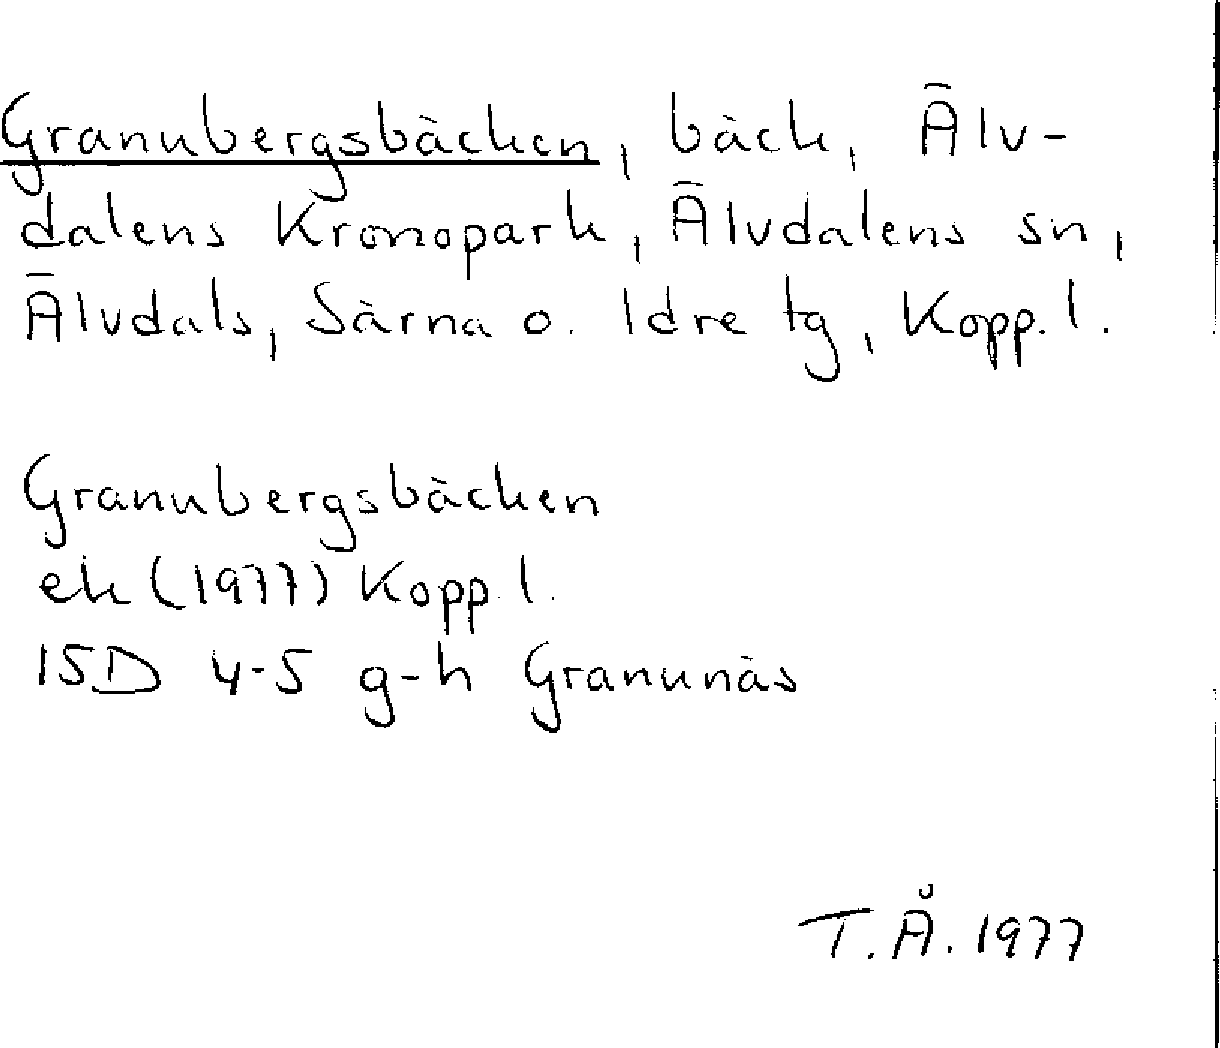 Granubergsbäcken, bäck, Älv-
dalens Kronopark, Älvdalens sn,
Älvdals, Särna o. Idre tg, Kopp. l.
Granubergsbäcken
ek (1977) Kopp. l.
15D 4-5 g-h Granunäs
T. Å. 1977